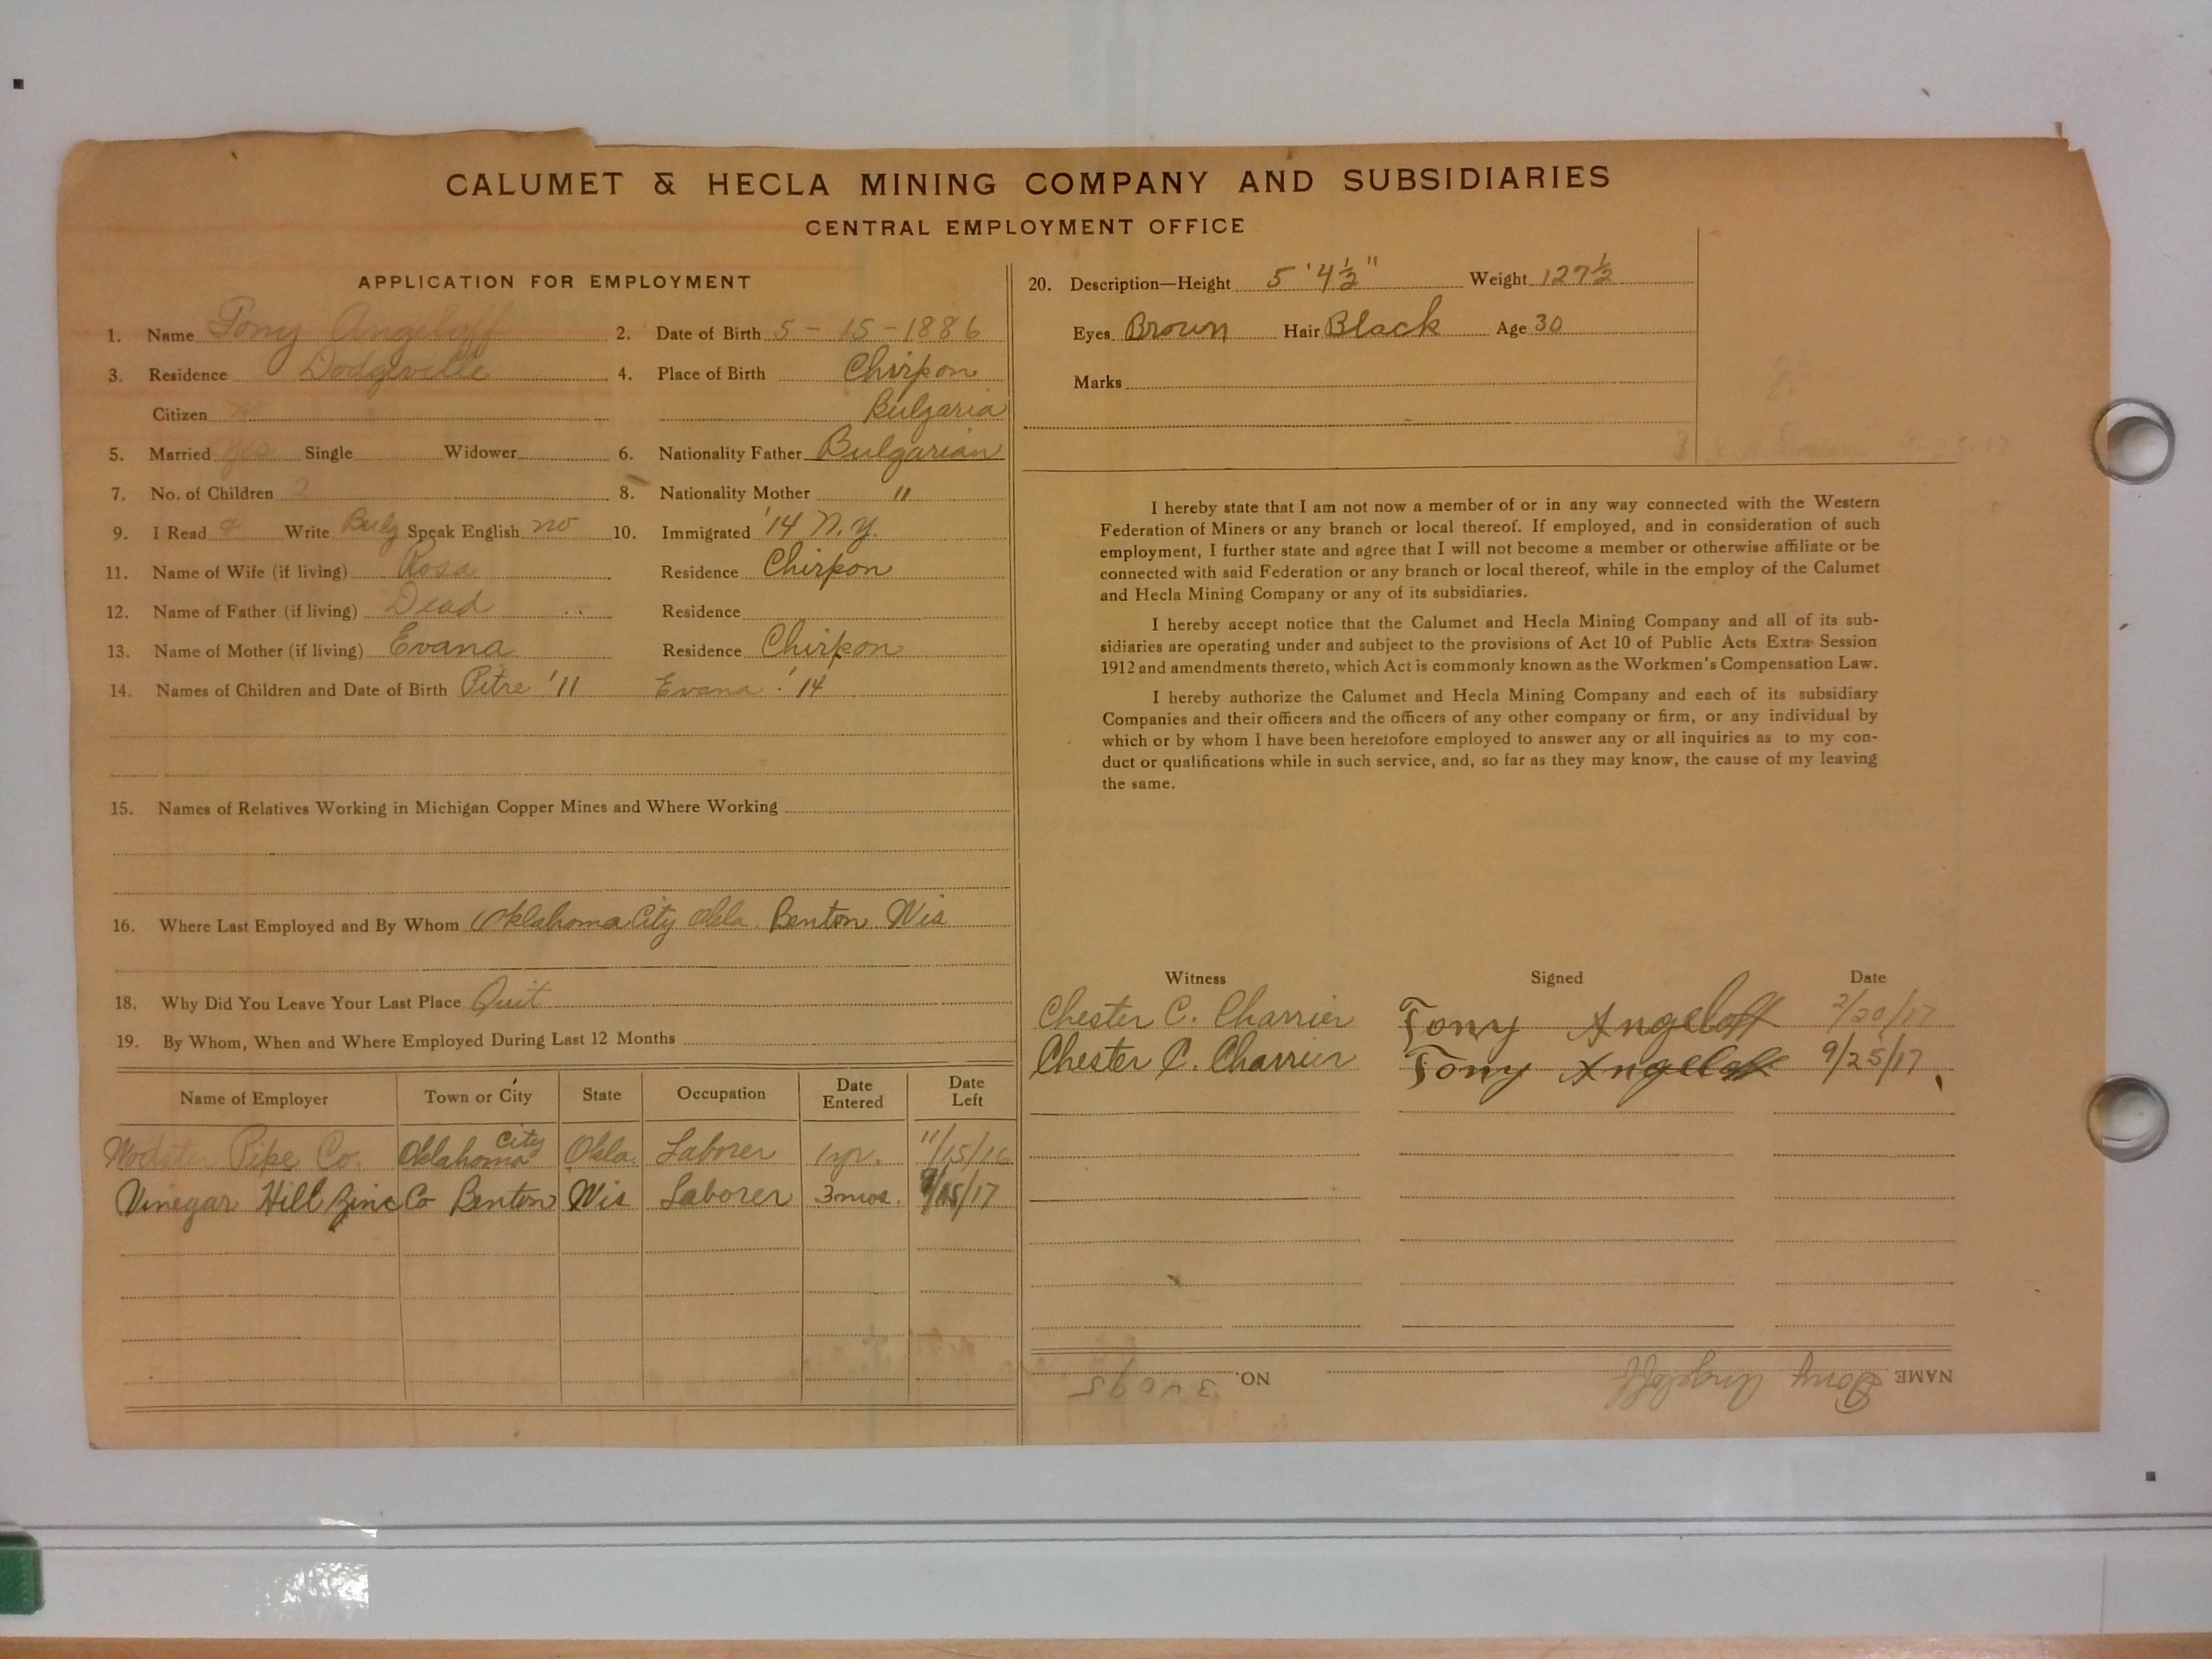 CALUMET & HECLA MINING COMPANY AND SUBSIDIARIES
CENTRAL EMPLOYMENT OFFICE
APPLICATION FOR EMPLOYMENT
1. Name Tony Angeloff 2. Date of Birth 5-15-1886
3. Residence Dodgeville 4. Place of Birth Chirpon
Citizen no Bulgaria
5. Married yes Single Widower 6. Nationality Father Bulgarian
7. No. of Children 2 8. Nationality Mother "
9. I Read & Write Bulg Speak English no 10. Immigrated '14 N.Y.
11. Name of Wife (if living) Rosa Residence Chirpon
12. Name of Father (if living) Dead Residence
13. Name of Mother (if living) Evana Residence Chirpon
14. Names of Children and Date of Birth Petre '11 Evana '14
15. Names of Relatives Working in Michigan Copper Mines and Where Working
16. Where Last Employed and By Whom Oklahoma City Okla. Benton Wis
18. Why Did You Leave Your Last Place Quit
19. By Whom, When and Where Employed During Last 12 Months
Name of Employer Town or City State Occupation Date Entered Date Left
Pipe Co. Oklahoma City Okla. Laborer 1 yr. 11/15/16
Vinegar Hill Zinc Co Benton Wis Laborer 3 mos. 9/15/17
20. Description—Height 5' 4½" Weight 127½
Eyes Brown Hair Black Age 30
Marks
I hereby state that I am not now a member of or in any way connected with the Western
Federation of Miners or any branch or local thereof. If employed, and in consideration of such
employment, I further state and agree that I will not become a member or otherwise affiliate or be
connected with said Federation or any branch or local thereof, while in the employ of the Calumet
and Hecla Mining Company or any of its subsidiaries.
I hereby accept notice that the Calumet and Hecla Mining Company and all of its sub-
sidiaries are operating under and subject to the provisions of Act 10 of Public Acts Extra Session
1912 and amendments thereto, which Act is commonly known as the Workmen's Compensation Law.
I hereby authorize the Calumet and Hecla Mining Company and each of its subsidiary
Companies and their officers and the officers of any other company or firm, or any individual by
which or by whom I have been heretofore employed to answer any or all inquiries as to my con-
duct or qualifications while in such service, and, so far as they may know, the cause of my leaving
the same.
Witness Signed Date
Chester C. Charrier Tony Angeloff 2/20/17
Chester C. Charrier Tony Angeloff 9/25/17
NAME Tony Angeloff NO.